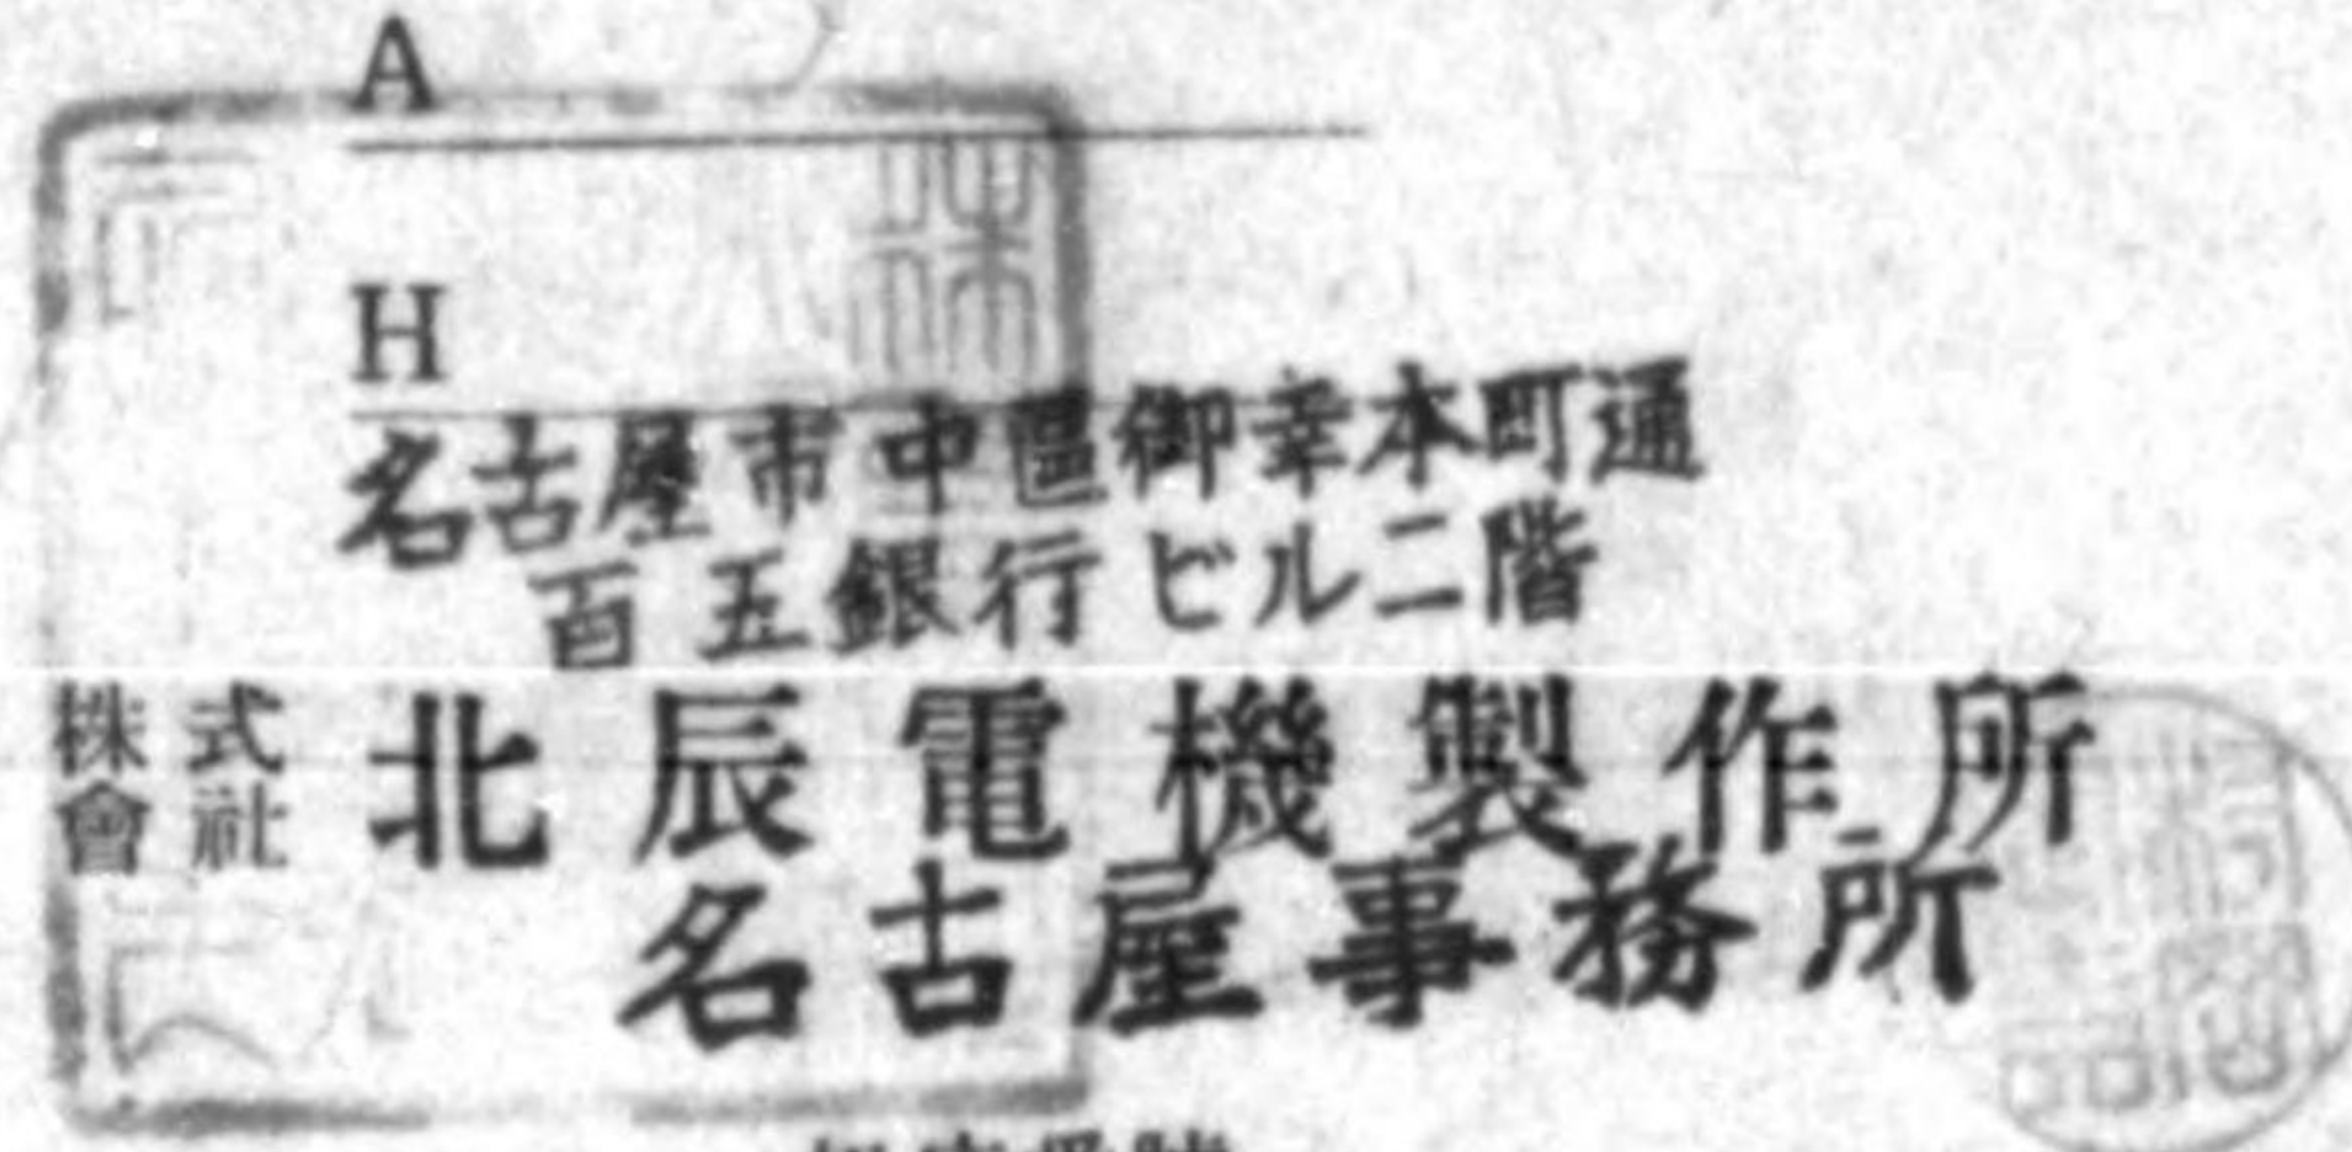 A
H
名古屋市中區御幸本町通
百五銀行ビル二階
株式會社 北辰電機製作所
名古屋事務所